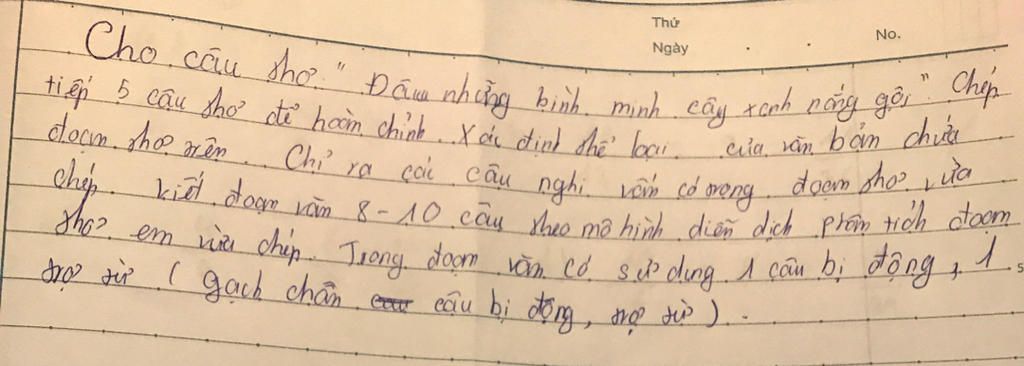 Thứ
Ngày . . No.
Cho câu thơ: " Đâu những bình minh cây xanh nắng gội " Chép
tiếp 5 câu thơ để hoàn chỉnh. Xác định thể loại của văn bản chứa
đoạn thơ trên. Chỉ ra các câu nghi vấn có trong đoạn thơ vừa
chép. Viết đoạn văn 8-10 câu theo mô hình diễn dịch phân tích đoạn
thơ em vừa chép. Trong đoạn văn có sử dụng 1 câu bị động, 1
trợ từ ( gạch chân câu bị động, trợ từ ).